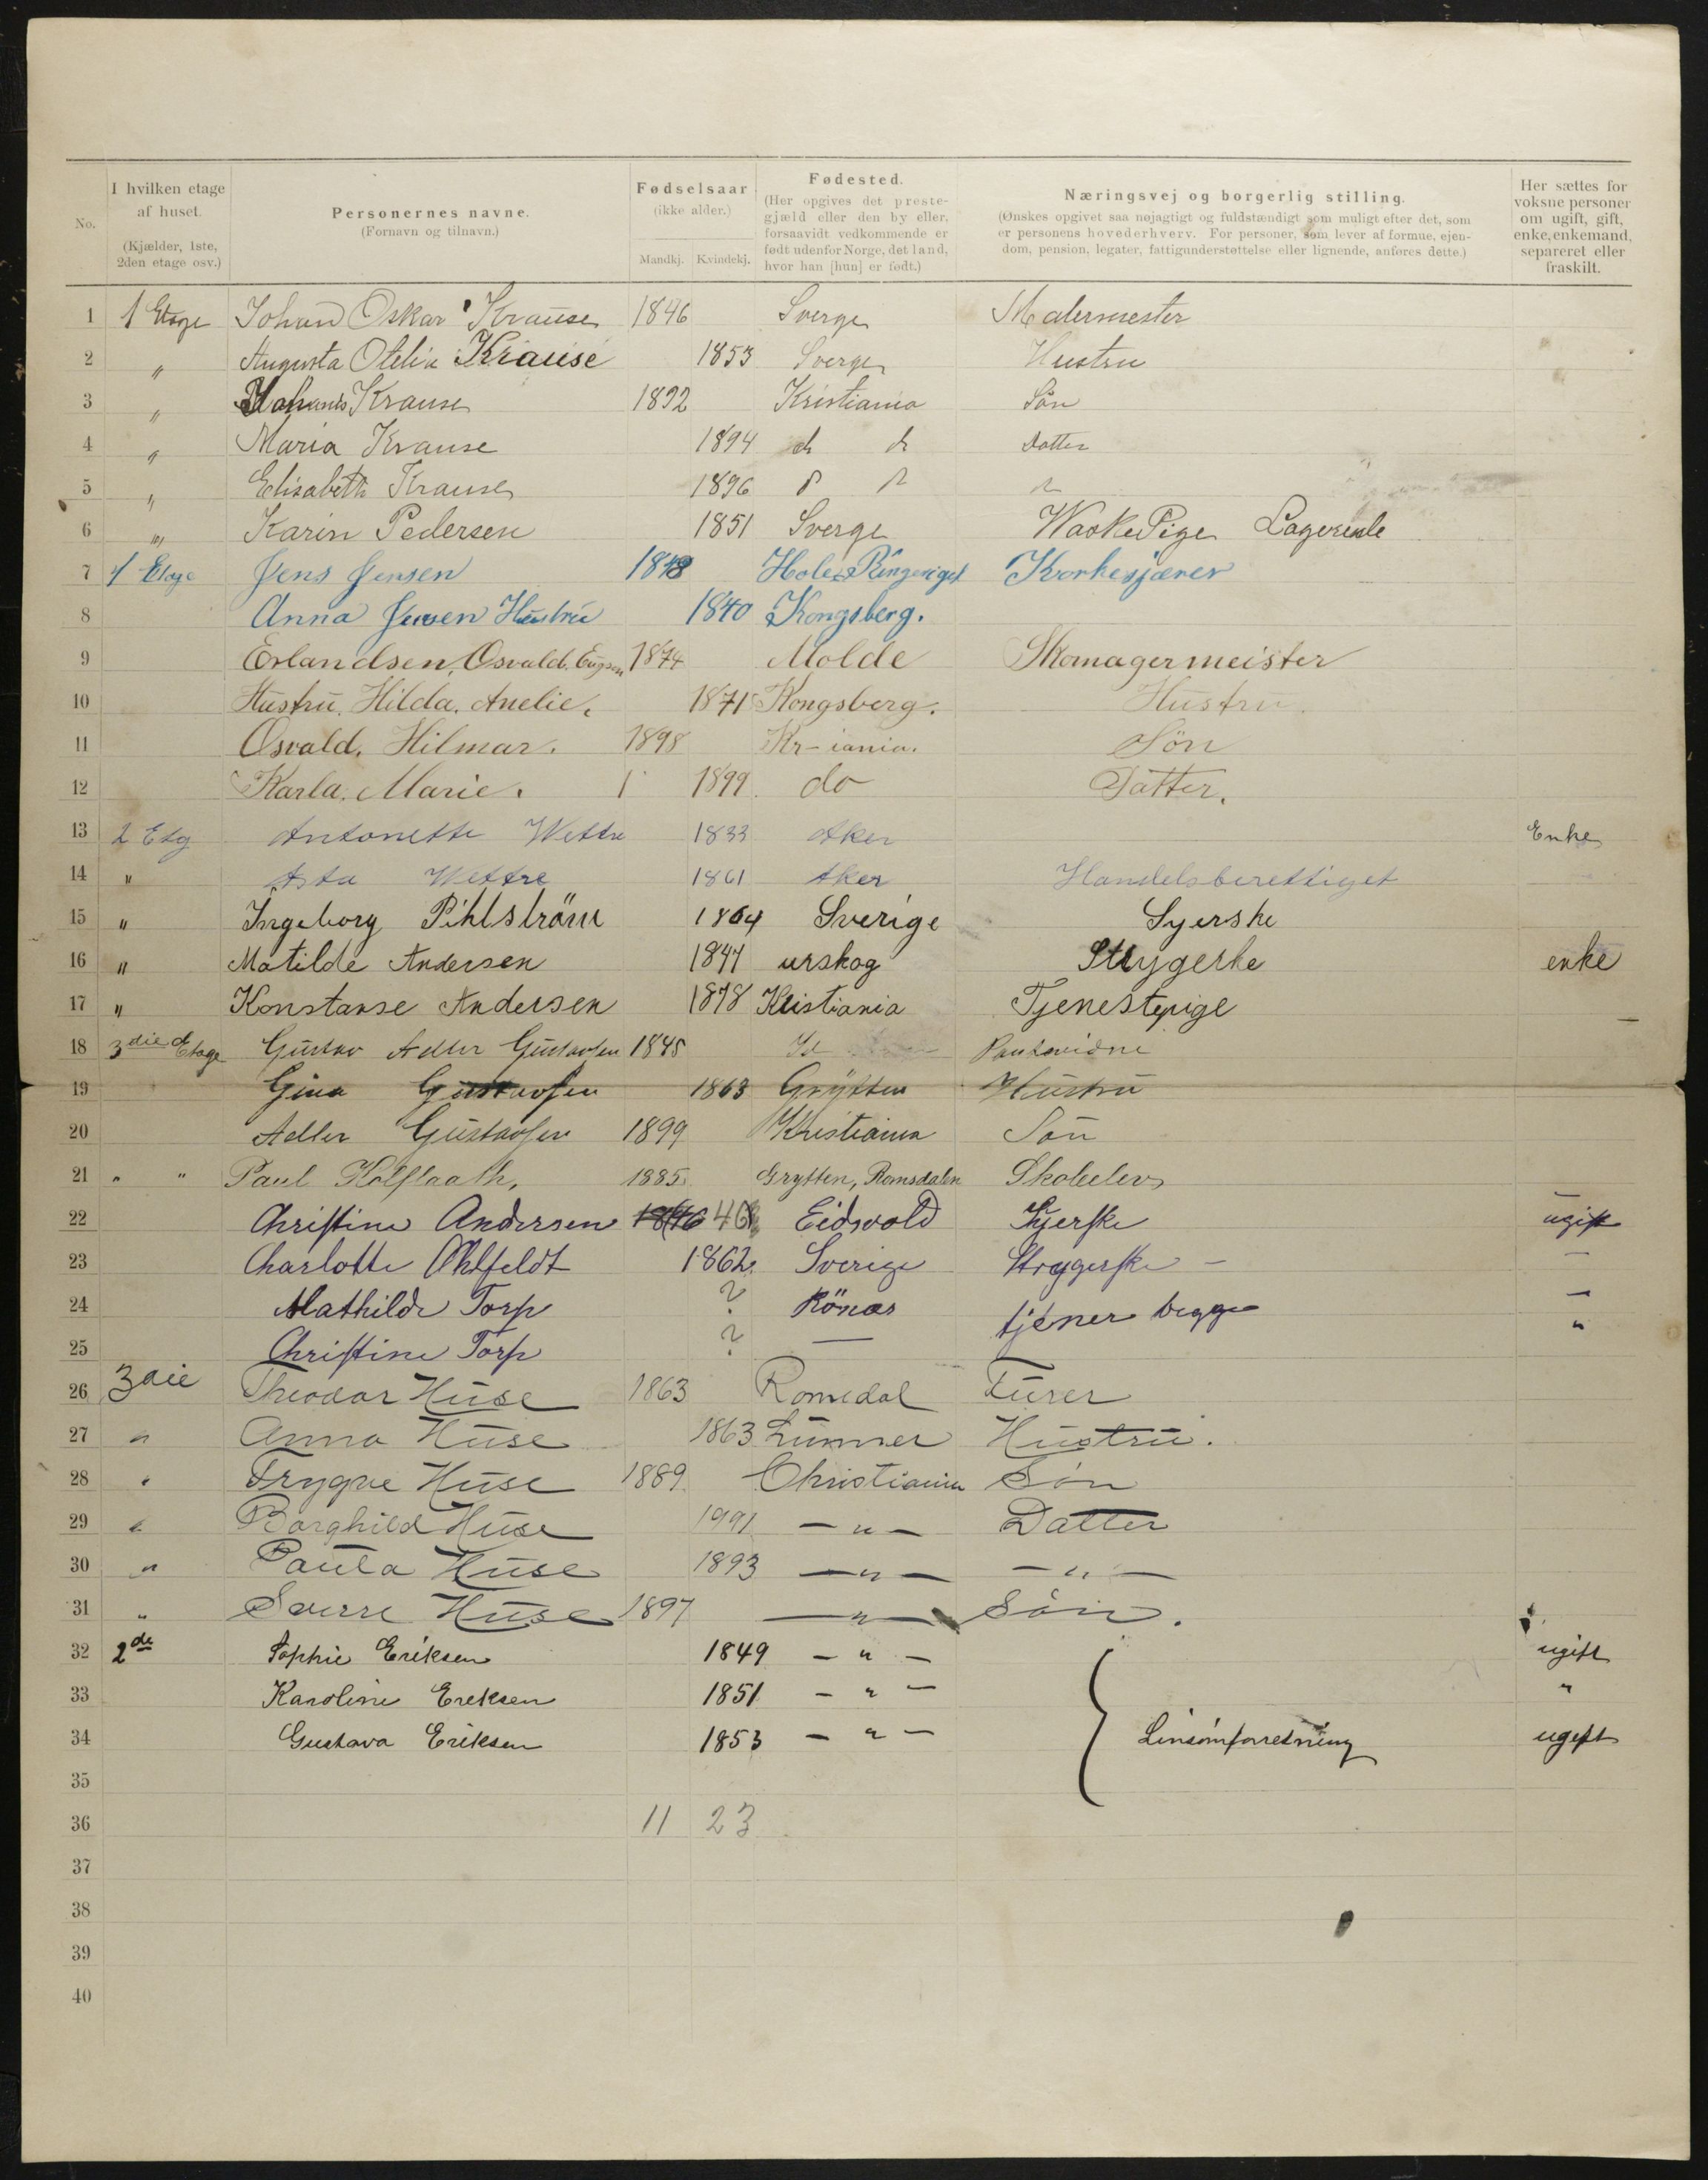 No.
I hvilken etage af huset.
(Kjælder, 1ste, 2den etage osv.)
Personernes navne.
(Fornavn og tilnavn.)
Fødselsaar
(ikke alder.)
Mandkj. Kvindekj.
Fødested.
(Her opgives det prestegjæld eller den by eller, forsaavidt vedkommende er født udenfor Norge, det land, hvor han [hun] er født.)
Næringsvej og borgerlig stilling.
(Ønskes opgivet saa nøjagtigt og fuldstændigt som muligt efter det, som er personens hovederhverv. For personer, som lever af formue, ejendom, pension, legater, fattigunderstøttelse eller lignende, anføres dette.)
Her sættes for voksne personer om ugift, gift, enke, enkemand, separeret eller fraskilt.
1 1 Etage Johan Oskar Krause 1846 Sverge Malermester
2 " Augusta Otelia Krause 1853 Sverge Hustru
3 " Johannes Krause 1892 Kristiania Søn
4 " Maria Krause 1894 do do Datter
5 " Elisabeth Krause 1896
6 " Karin Pedersen 1851 Sverge WaskePige
7 1 Etage Jens Jensen Hole Ringeriget
8 Anna Jensen Hustru 1840 Kongsberg.
9 Erlandsen, Osvald. 1874 Molde Skomagermeister
10 Hustru. Hilda. Amelie. 1871 Kongsberg. Hustru.
11 Osvald. Hilmar. 1898 Kr-iania. Søn
12 Karla. Marie. 1 1899 do Datter.
13 2 Etg Antonette Wettre 1833 Aker Enke
14 " Asta Wettre 1861 Aker Handelsberettiget
15 " Ingeborg Pihlström 1864 Sverige Syerske
16 " Matilde Andersen urskog Strygerke enke
17 " Konstanse Andersen 1878 Kristiania Tjenestepige
18 3die Etage Gustav Adler Gustavsen 1845
19 Gina Gustavsen 1863 Grytten Hustru
20 Adler Gustavsen 1899 Kristiania Søn
21 " " Paul 1885. Grytten, Romsdalen Skoleelev
22 Christine Andersen 1846 46 Eidsvold Syerske ugift
23 Charlotte Ohlfeldt 1862 Sverige Strygerske – –
24 Mathilde Torp ? tjener begge –
25 Christine Torp ? — "
26 3die Theodor Huse 1863 Romedal Turer
27 " Anna Huse 1863 Lunner Hustru.
28 " Trygve Huse 1889 Christiania Søn
29 " Borghild Huse 1991 – " – Datter
30 " Paula Huse 1893 – " – – " –
31 " Sverre Huse 1897 – " – Søn.
32 2de Sophie Eriksen 1849 – " – ugift
33 Karoline Ereksen 1851 – " – "
34 Gustava Eriksen 1853 – " – Linsømforretning ugift
35
36 11 23
37
38
39
40